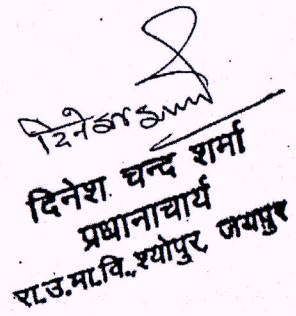 दिनेश शर्मा
दिनेश चन्द शर्मा
प्रधानाचार्य
रा.उ.मा.वि., श्योपुर, जयपुर